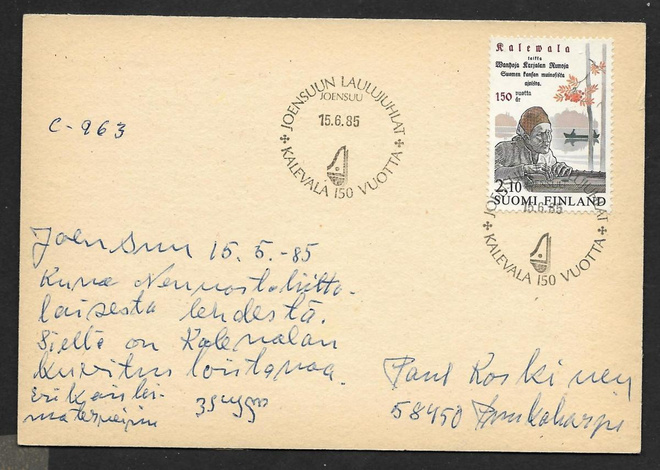 Kalewala
taikka
Wanhoja Karjalan Runoja
Suomen kansan muinosista
ajoista.
150 vuotta
år
2,10
SUOMI FINLAND
✢ JOENSUUN LAULUJUHLAT ✢
JOENSUU
15.6.85
KALEVALA 150 VUOTTA
15.6.85
KALEVALA 150 VUOTTA
C-963
Joensuu 15.5.-85
Kuva Neuvostoliitto-
laisesta lehdestä.
Siellä on Kalevalan
kuvitus loistavaa.
erikois
Paul Koskinen
58450 Punkaharju